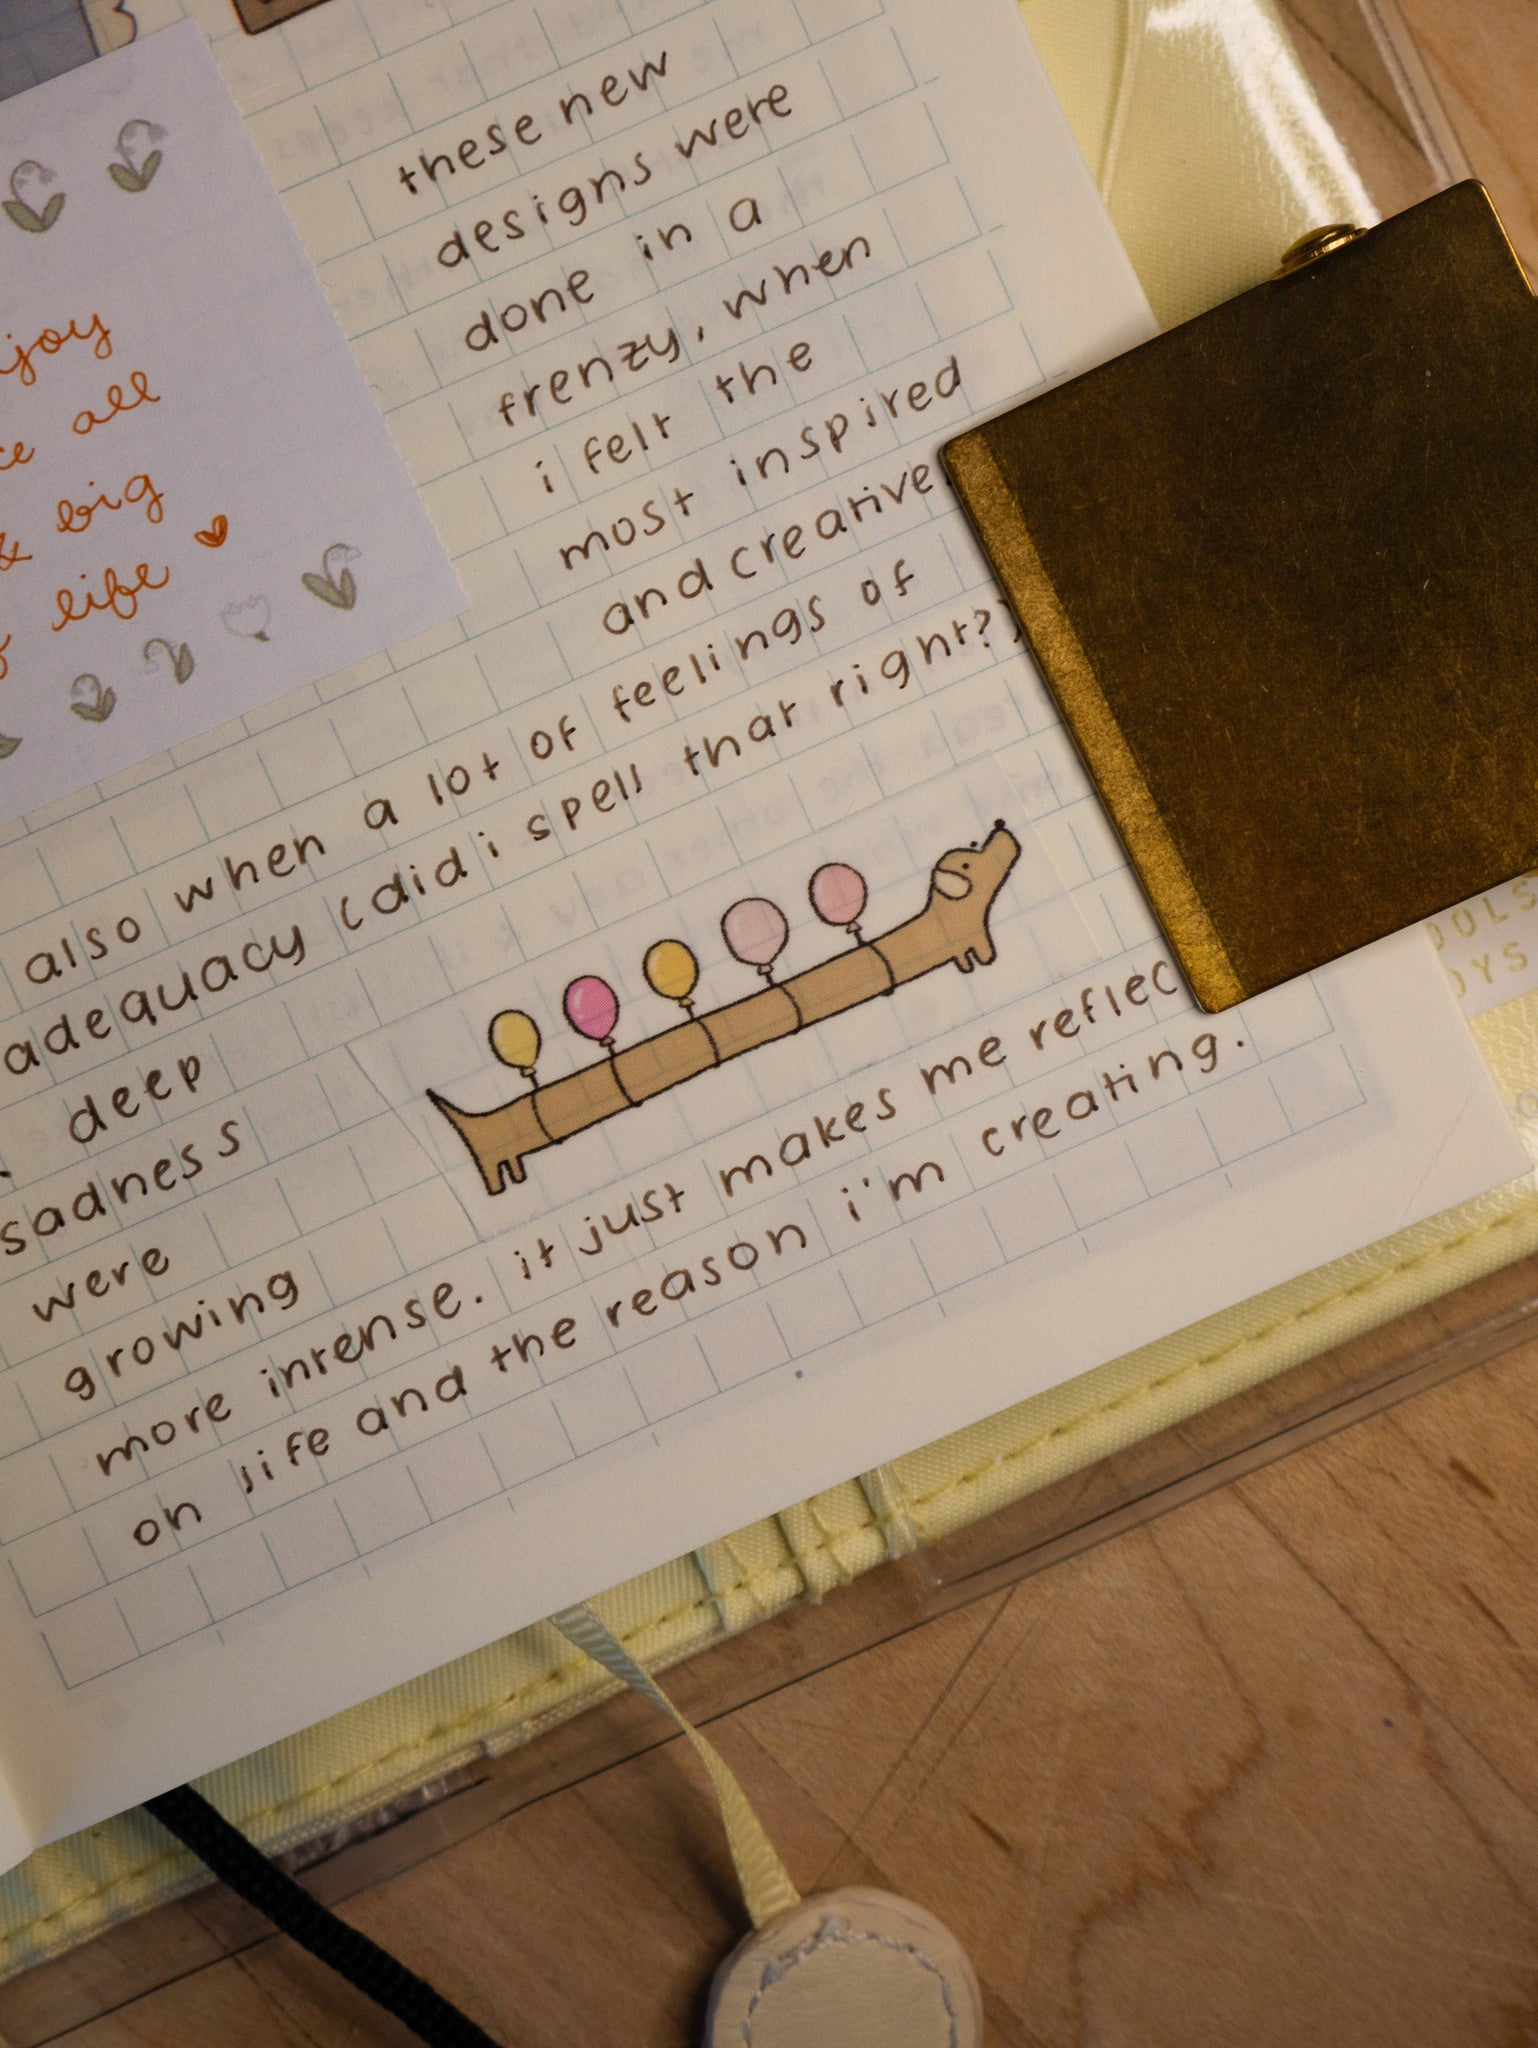 these new
designs were
done in a
frenzy, when
i felt the
most inspired
and creative.
also when a lot of feelings of
adequacy (did i spell that right?)
deep
sadness
were
growing
more intense. it just makes me reflec
on life and the reason i'm creating.
all
& big
life